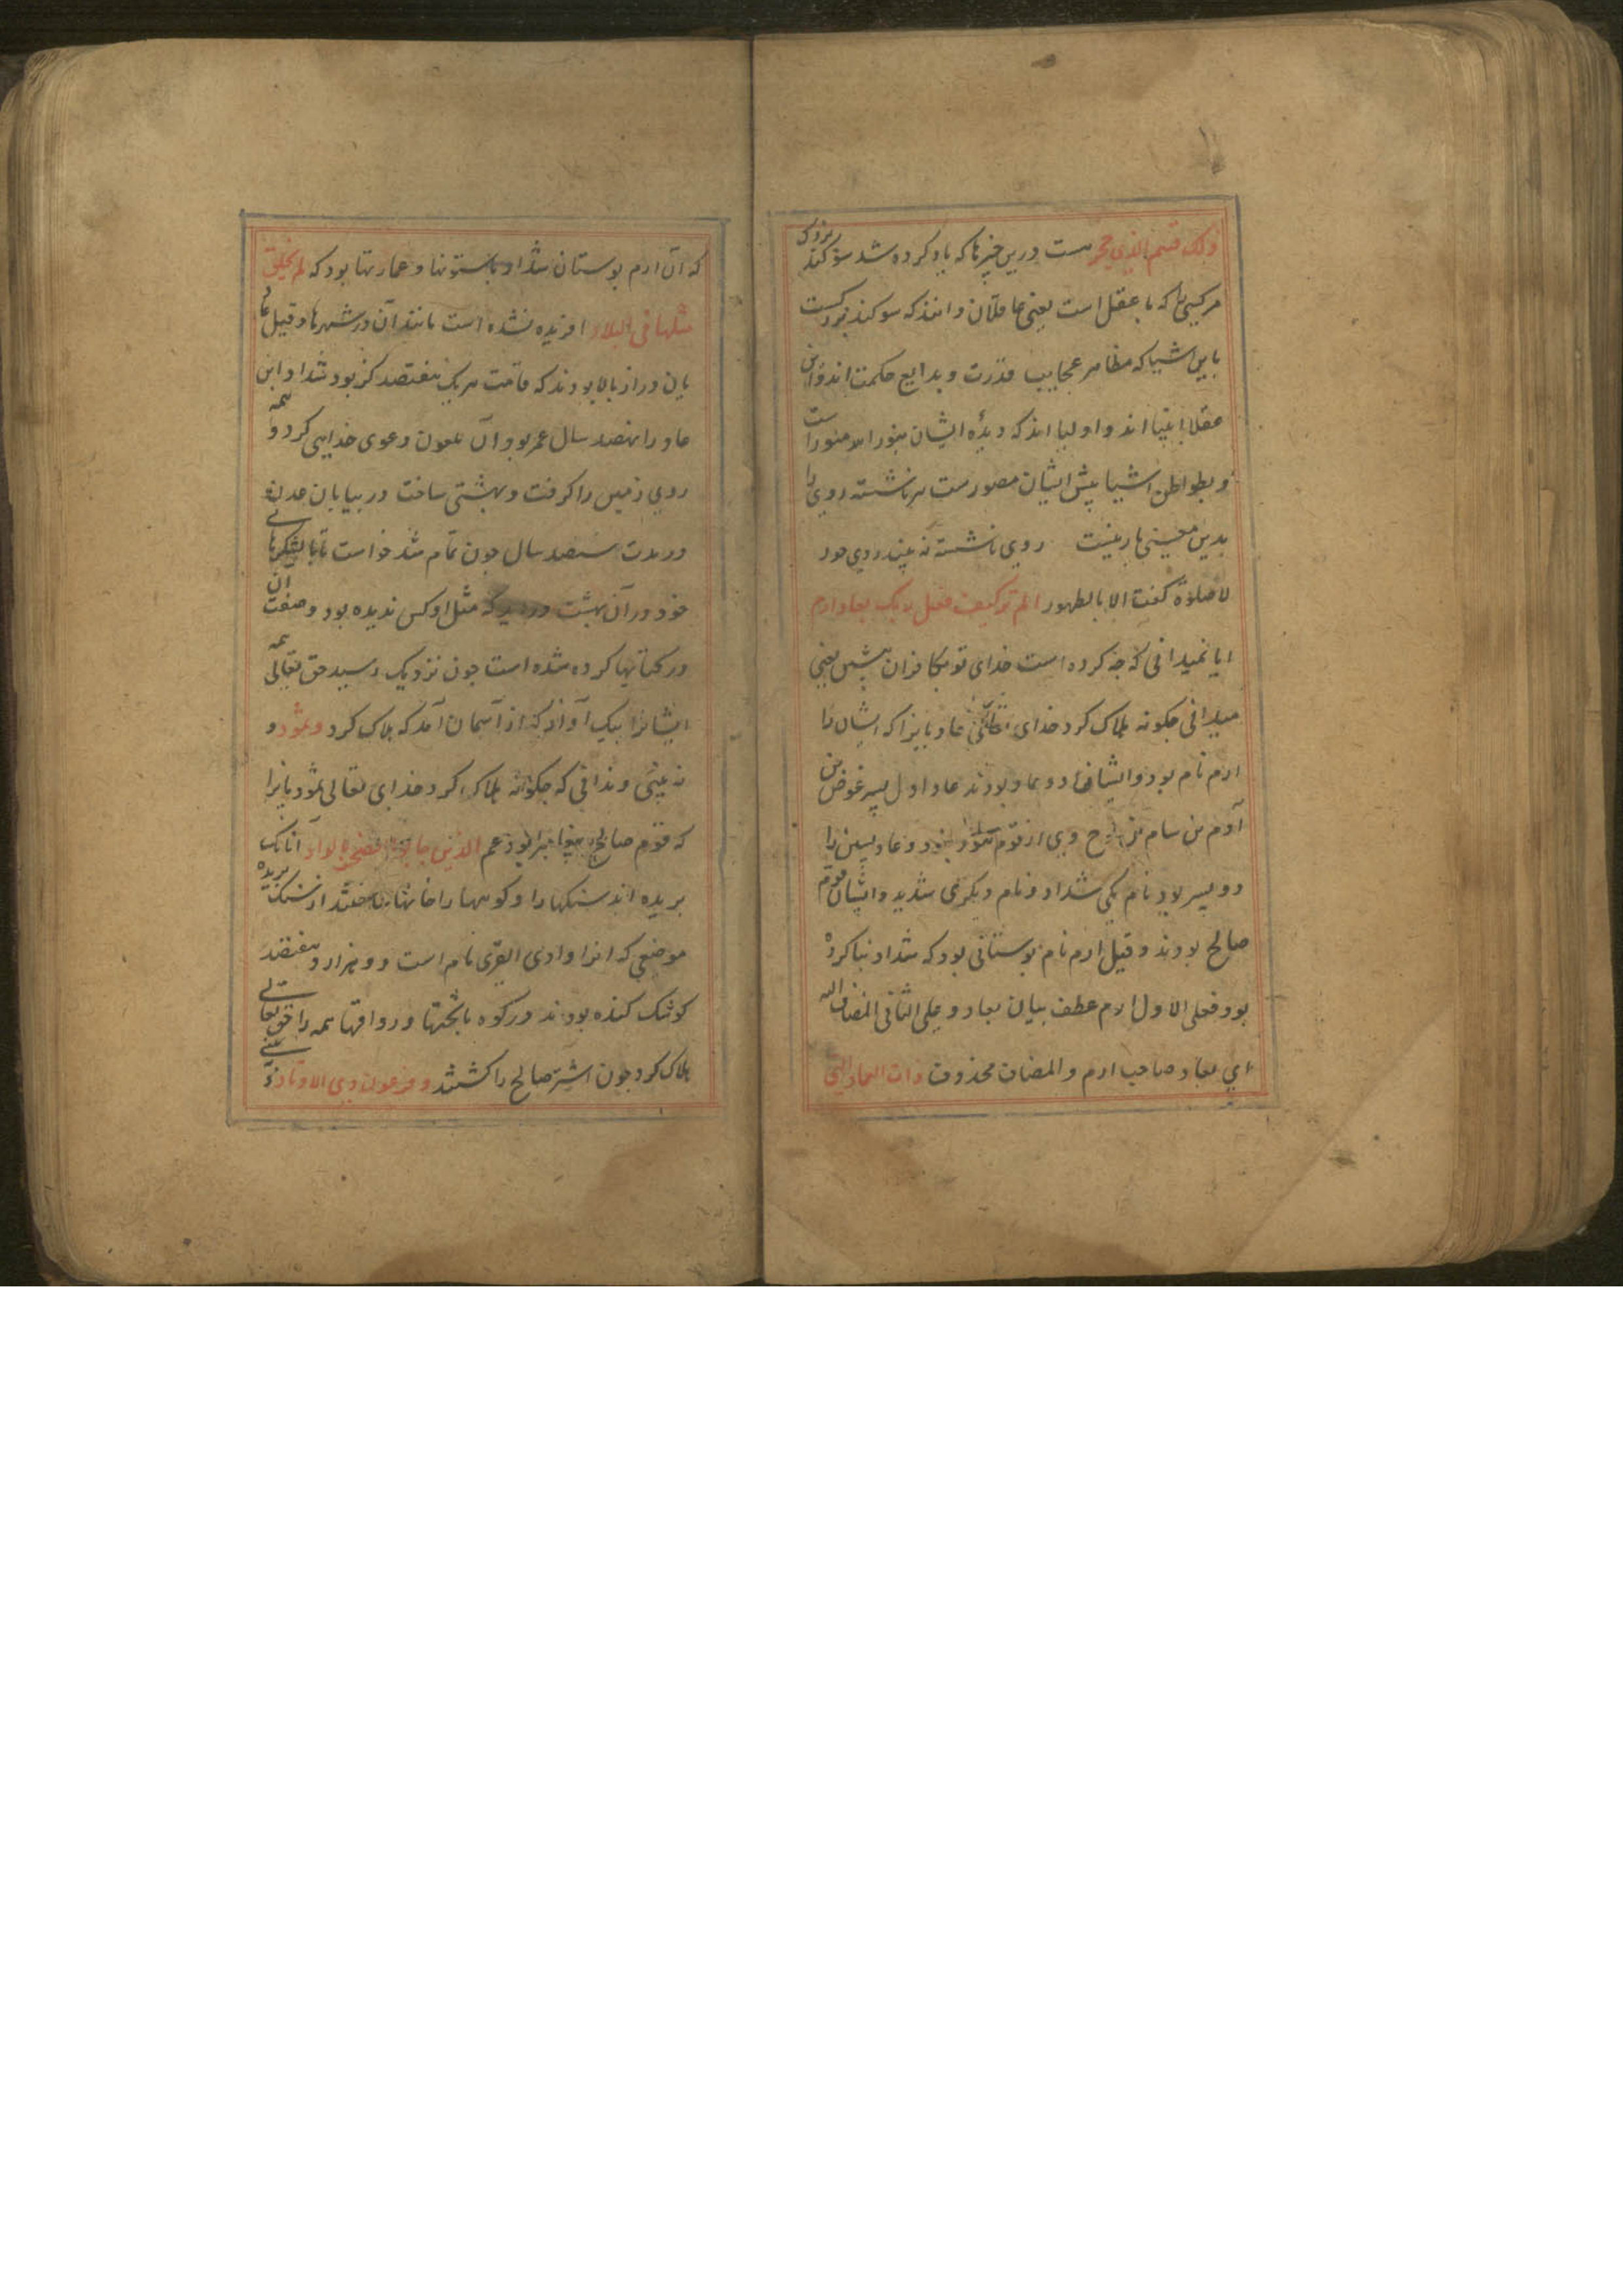 ذلک قسم لذی حجر هست درین چیزها که یاد کرده شد سوکند بزرک
هر کسی را که با عقل است یعنی عاقلان دانند که سوکند بزرکست
باین اشیا که مظاهر عجایب قدرت و بدایع حکمت اند و این
عقلا انبیا اند و اولیا اند که دیدۀ ایشان بنور او منور است
و بواطن اشیا پیش ایشان مصور ست هر ناشسته روی را
بدین معنی بار نیست روی ناشسته نه بیند روی حور
لا صلوة کفت الا بالطهور الم تر کیف فعل ربک بعاد ارم
ایا نمیدانی که جه کرده است خدای تو بکافران پیشین یعنی
میدانی جکونه هلاک کرد خدای تعالی عادیانرا که ایشان را
ارم نام بود و ایشان دو عاد بودند عاد اول پسر عوض بن
آدم بن سام بن نوح وی از قوم بود و عاد پسین را
دو پسر بود نام یکی شداد و نام دیکری شدید و ایشان قوم
صالح بودند و قیل ارم نام بوستانی بود که شداد بنا کرده
بود فعلی الاول ارم عطف بیان بعاد و علی الثانی المضاف الیه
ای بعاد صاحب ارم و المضاف محذوف ذات العماد التی
که آن ارم بوستان شداد با ستونها و عمارتها بود که لم یخلق
مثلها فی البلاد افریده نشده است مانند آن در شهرها و قیل عاد
یان دراز بالا بودند که قامت هر یک هفتصد کز بود شداد ابن
عاد را نهصد سال عمر بود آن ملعون دعوی خدایی کرد و همه
روی زمین را کرفت و بهشتی ساخت در بیابان عدن
در مدت سیصد سال جون تمام شد خواست تا با لشکرهای
خود در آن بهشت در اید که مثل او کس ندیده بود و صفت آن
در کتابها کرده شده است جون نزدیک رسید حق تعالی همه
ایشانرا بیک آواز که از آسمان آمد که هلاک کرد و ثمود و
نه بینی و ندانی که جکونه هلاک کرد خدای تعالی ثمودیانرا
که قوم صالح پیغامبر بودند عم الذین جابوا الصخر بالواد آنانک
بریده اند سنکها را و کوهها را خانها ساختند از سنک بریده
موضعی که انرا وادی القری نام است دو هزار و هفتصد
کوشک کنده بودند در کوه با تختها و رواقها همه را حق تعالی
هلاک کرد جون اشتر صالح را کشتند و فرعون ذی الاوتاد